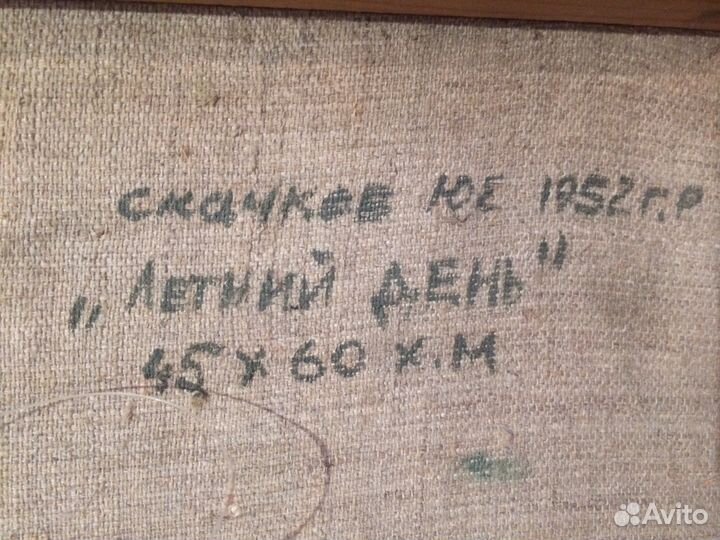 скачков Ю Е 1952 г.р
„Летний день"
45 х 60 х.м
Avito